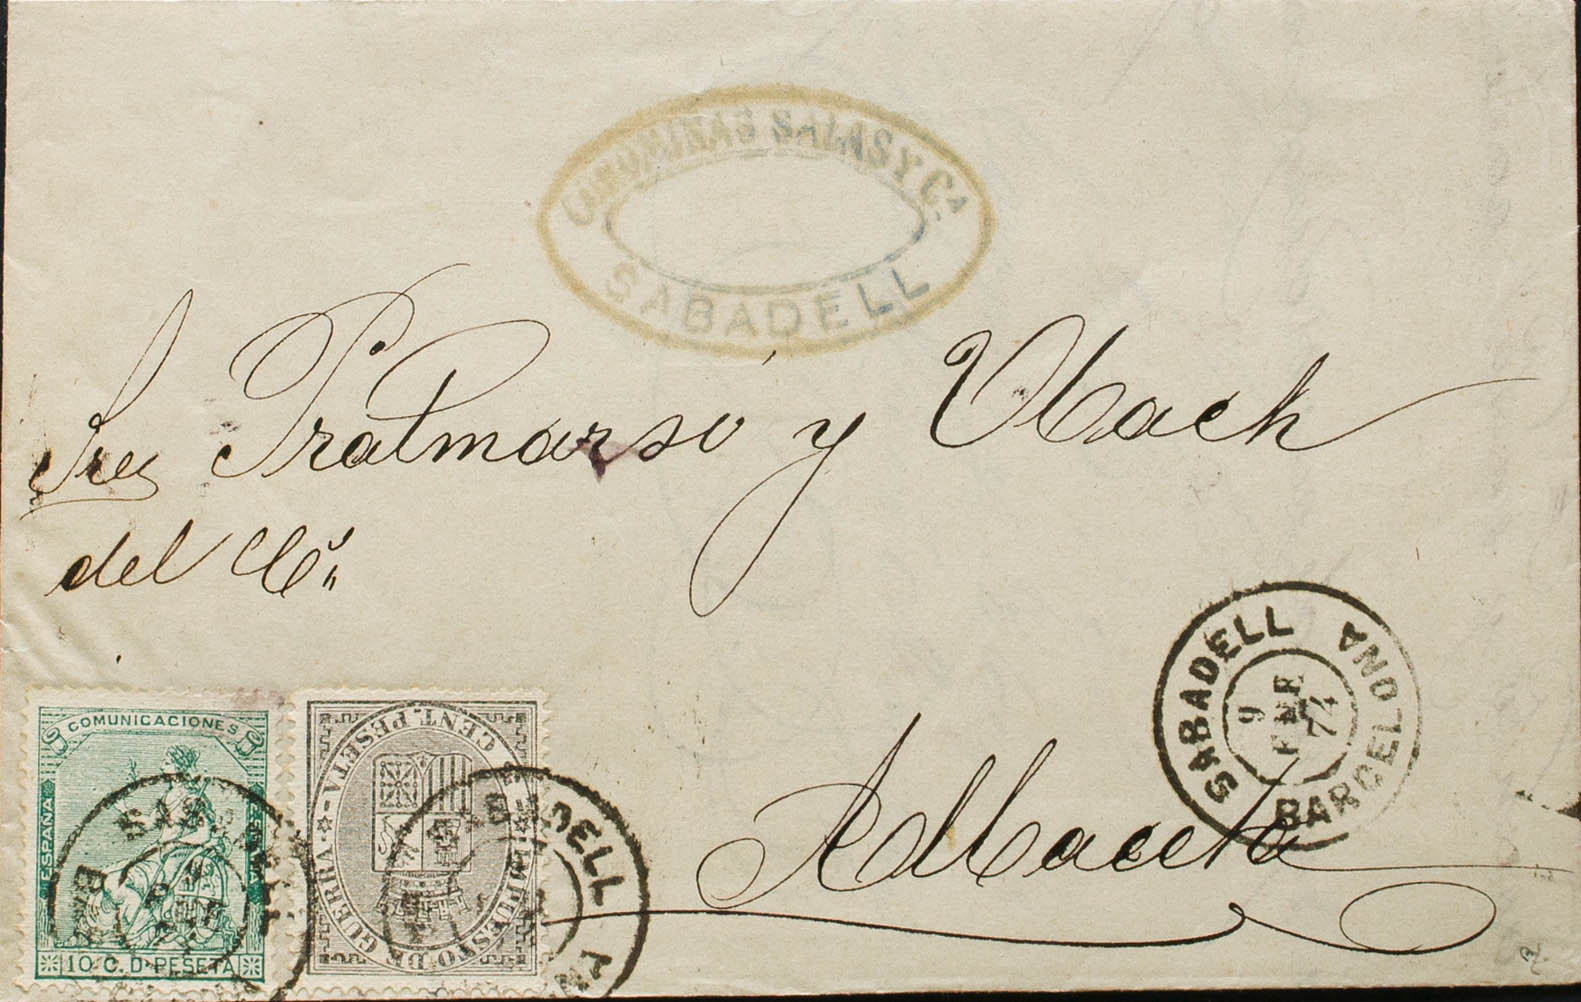 COROMINAS SALAS Y Cª
SABADELL
Sres Pratmarsó y Ubach
del Cº
Albacete
SABADELL
BARCELONA
9 ENE 74
COMUNICACIONES
ESPAÑA
10 C. D PESETA
IMPUESTO DE GUERRA
CENT. PESETA
SABADELL